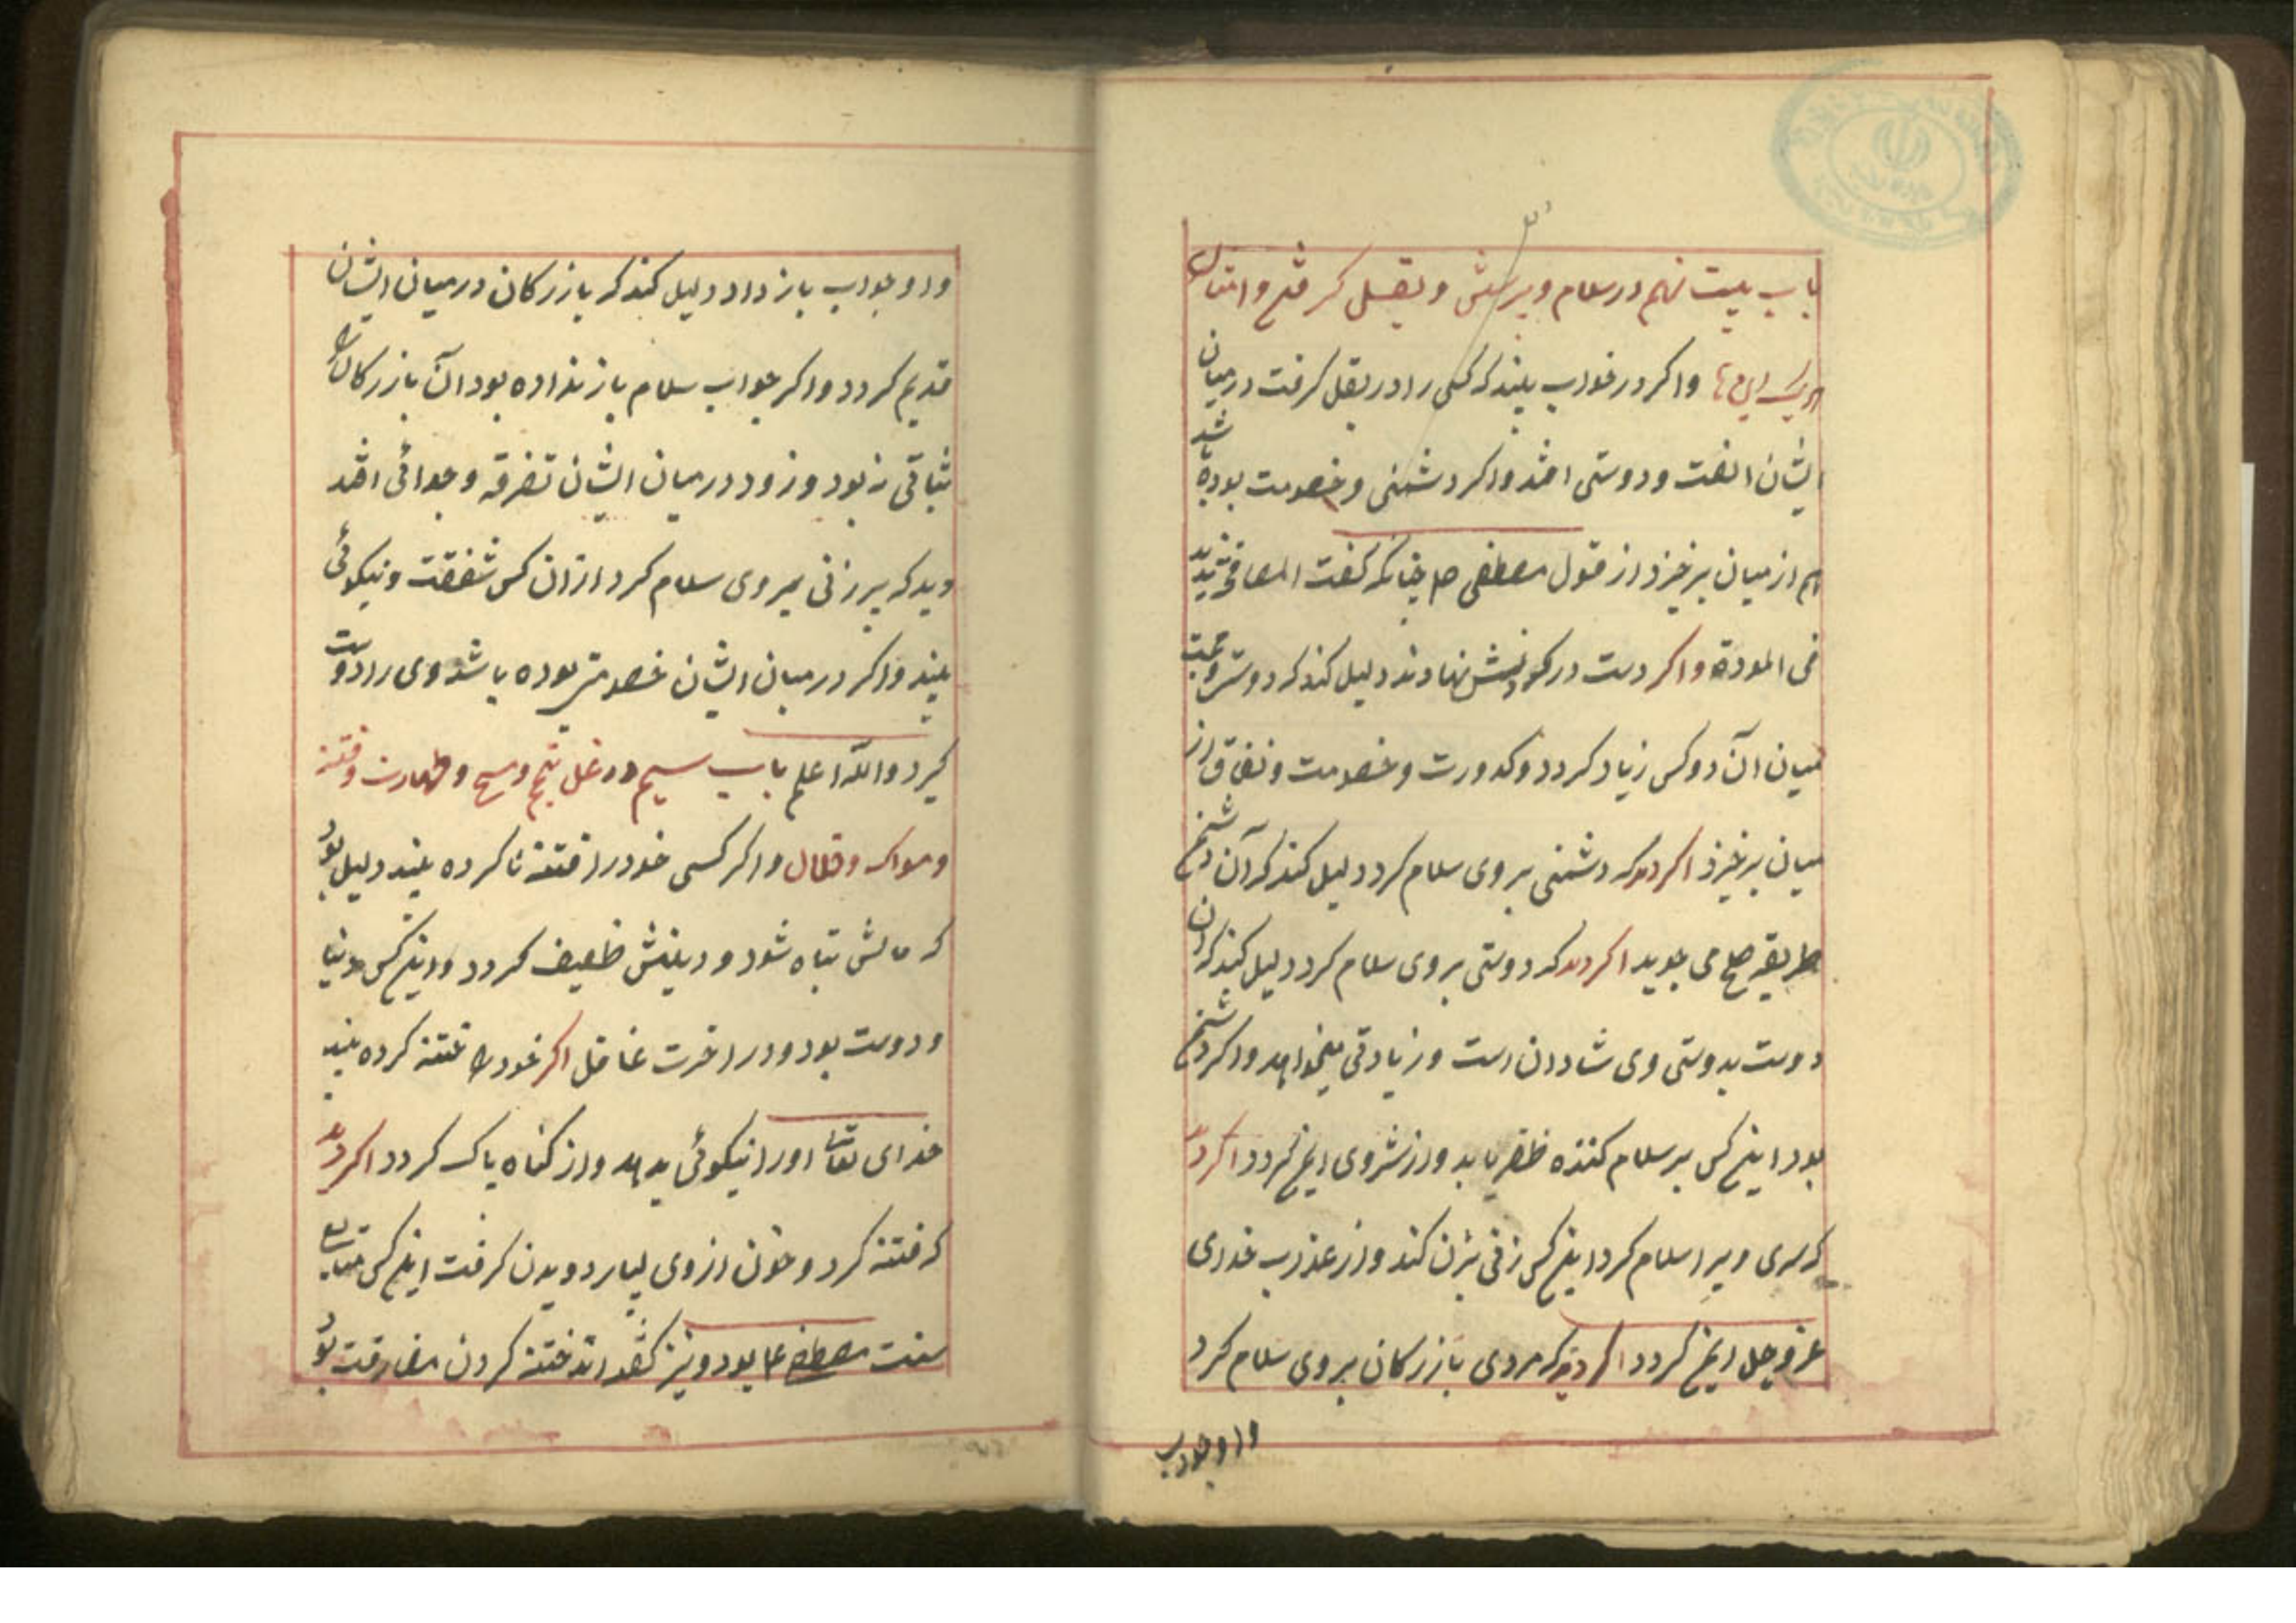 باب بیست نهم در سلام و پرسش و بغل گرفتن و امثال
این‌ها و اگر در خواب بیند که کسی را در بغل گرفت در میان
ایشان الفت و دوستی افتد و اگر دشمنی و خصومت بوده باشد
هم از میان برخیزد از قول مصطفی ص چنانکه گفت المصافحة تزید
فی المودة و اگر دست در نهادند دلیل کند که دوستی و محبت
میان آن دو کس زیاد گردد و کدورت و خصومت و نفاق از
میان برخیزد اگر دید که دشمنی بر وی سلام کرد دلیل کند که آن دشمن
طریقه صلح می جوید اگر دید که دوستی بر وی سلام کرد دلیل کند که آن
دوست بدوستی وی شادان است و زیادتی میخواهد و اگر دشمن
بود اینکس بر سلام کننده ظفر یابد و از شر وی ایمن گردد اگر دید
که سری ویرا سلام کرد اینکس زنی بزن کند و از عذاب خدای
عز و جل ایمن گردد اگر دید که مردی بازرگان بر وی سلام کرد
و او جواب
و او جواب باز داد دلیل کند که بازرگان در میان ایشان
قدیم گردد و اگر جواب سلام باز نداده بود آن بازرگان را
ثباتی نبود و زود در میان ایشان تفرقه و جدائی افتد
دید که پیر زنی بروی سلام کرد از آن کس شفقت و نیکوئی
بیند و اگر در میان ایشان خصومتی بوده باشد وی را دوست
گیرد والله اعلم باب سیم در غسل تیمم و مسح و طهارت و ختنه
و مسواک و خلال و اگر کسی خود را ختنه نا کرده بیند دلیل بود
که مالش تباه شود و دینش ظعیف گردد و اینکس دنیا
و دوست بود و در اخرت غافل اگر خود را ختنه کرده بیند
خدای تعالی او را نیکوئی بدهد و از گناه پاک گردد اگر دید
که ختنه کرد و خون از وی بسیار دویدن گرفت اینکس متابع
سنت مصطفی ع بود و نیز گفته‌اند ختنه کردن مفارقت بود